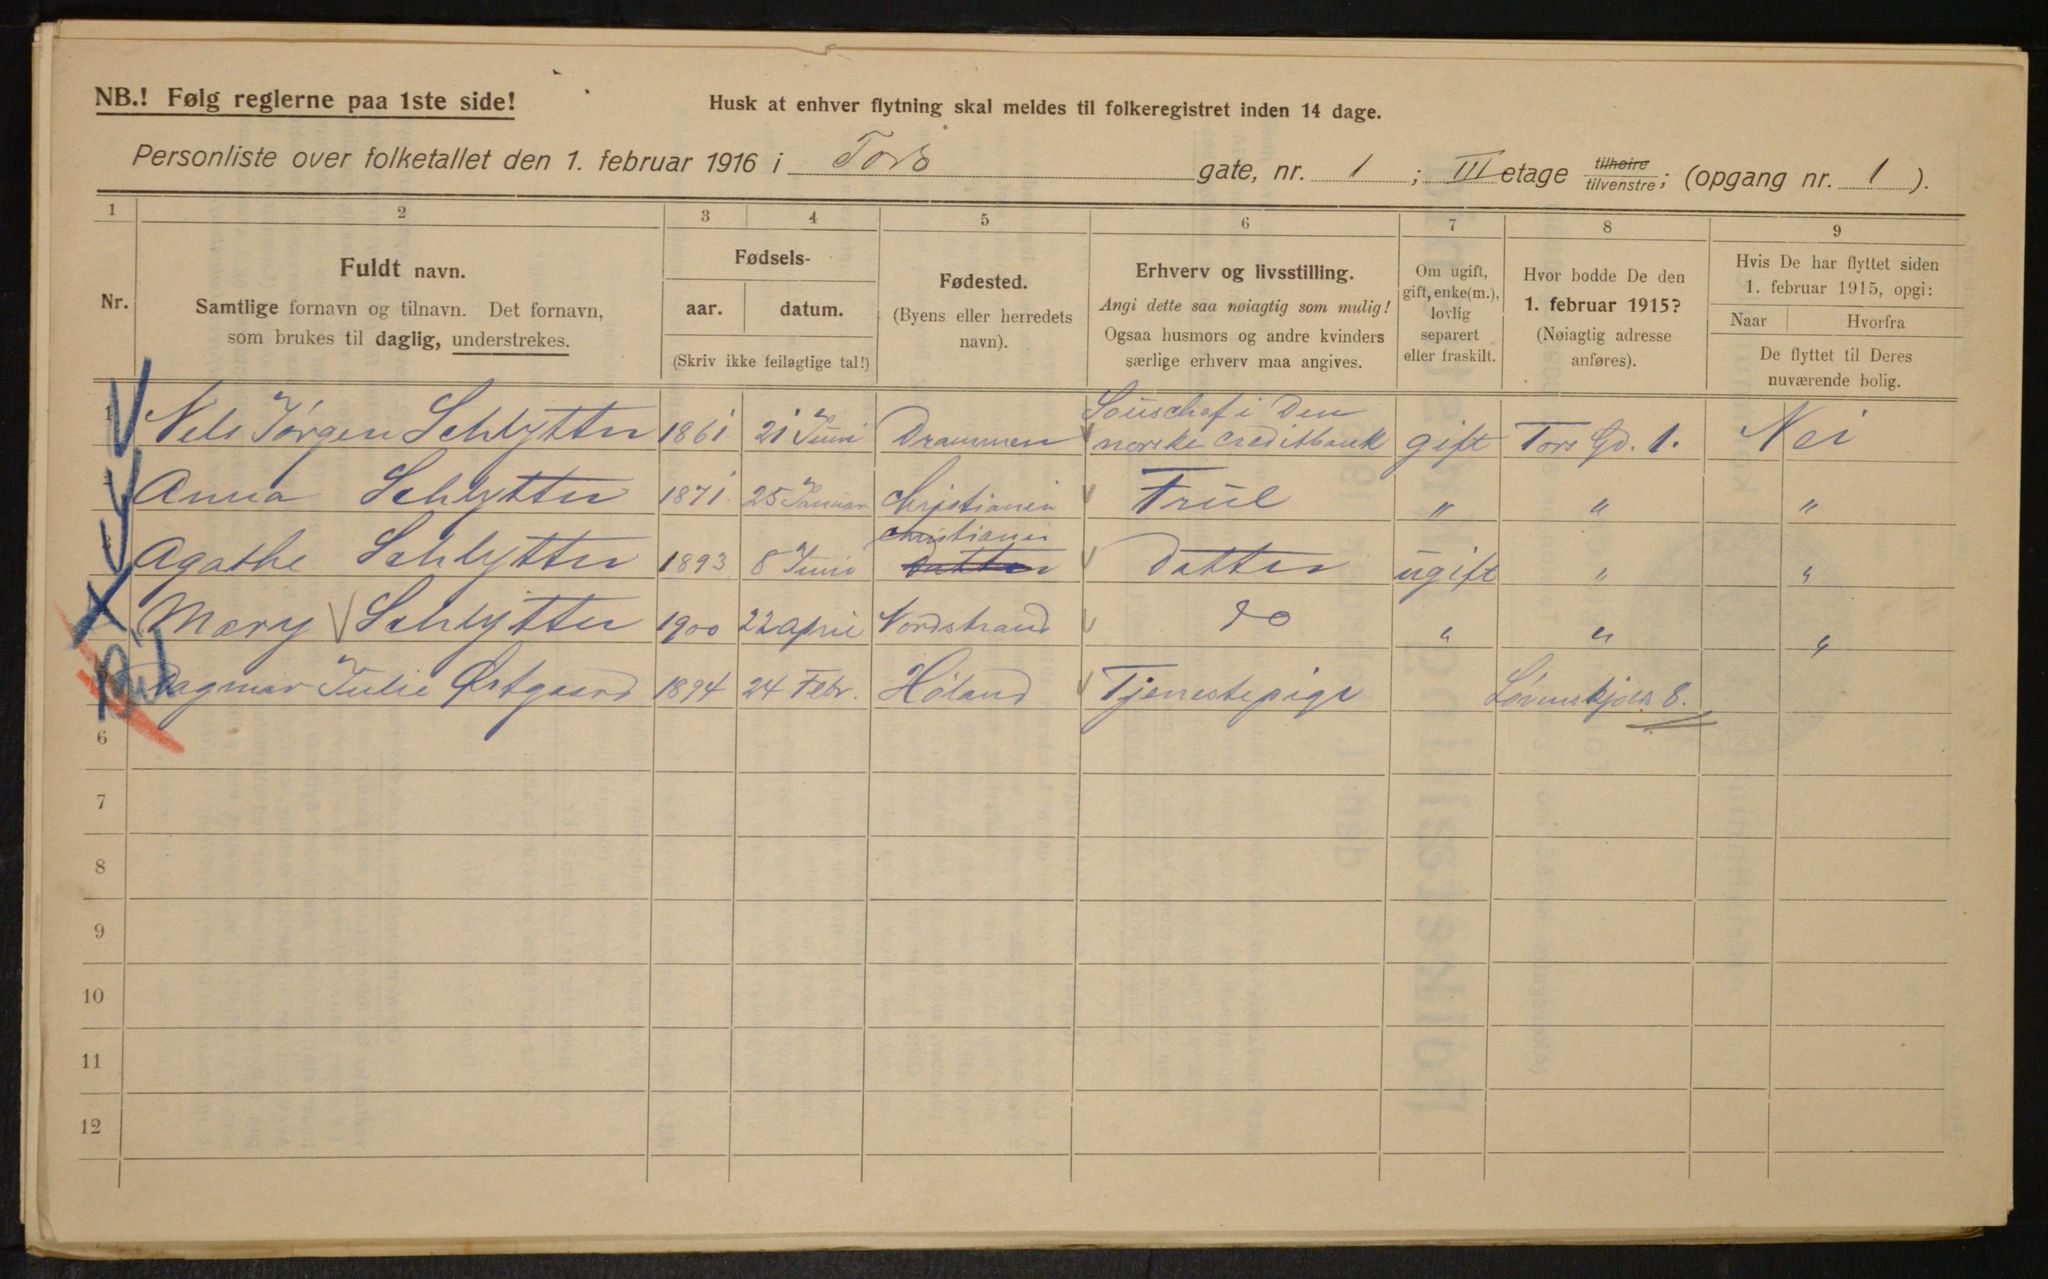 NB.! Følg reglerne paa 1ste side!
Husk at enhver flytning skal meldes til folkeregistret inden 14 dage.
Personliste over folketallet den 1. februar 1916 i Tors gate, nr. 1 ; III etage tilhøire/tilvenstre; (opgang nr. 1 ).
1 2 3 4 5 6 7 8 9
Nr.
Fuldt navn.
Samtlige fornavn og tilnavn. Det fornavn,
som brukes til daglig, understrekes.
Fødsels-
aar. datum.
(Skriv ikke feilagtige tal!)
Fødested.
(Byens eller herredets
navn).
Erhverv og livsstilling.
Angi dette saa nøiagtig som mulig!
Ogsaa husmors og andre kvinders
særlige erhverv maa angives.
Om ugift,
gift, enke(m.),
lovlig
separert
eller fraskilt.
Hvor bodde De den
1. februar 1915?
(Nøiagtig adresse
anføres).
Hvis De har flyttet siden
1. februar 1915, opgi:
Naar Hvorfra
De flyttet til Deres
nuværende bolig.
1 Nels Jørgen Schlytter 1861 21 Juni Drammen Souschef i Den norske Creditbank gift Tors Gd. 1. Nei
Anna Schlytter 1871 25 Januar Christiania Frue " " "
Agathe Schlytter 1893 8 Juni Datter Christiania Datter ugift " "
Mary Schlytter 1900 22 April Nordstrand do " " "
Dagmar Julie Østgaard 1894 24 Febr. Höland Tjenestepige Løvenskjolds 8.
6
7
8
9
10
11
12